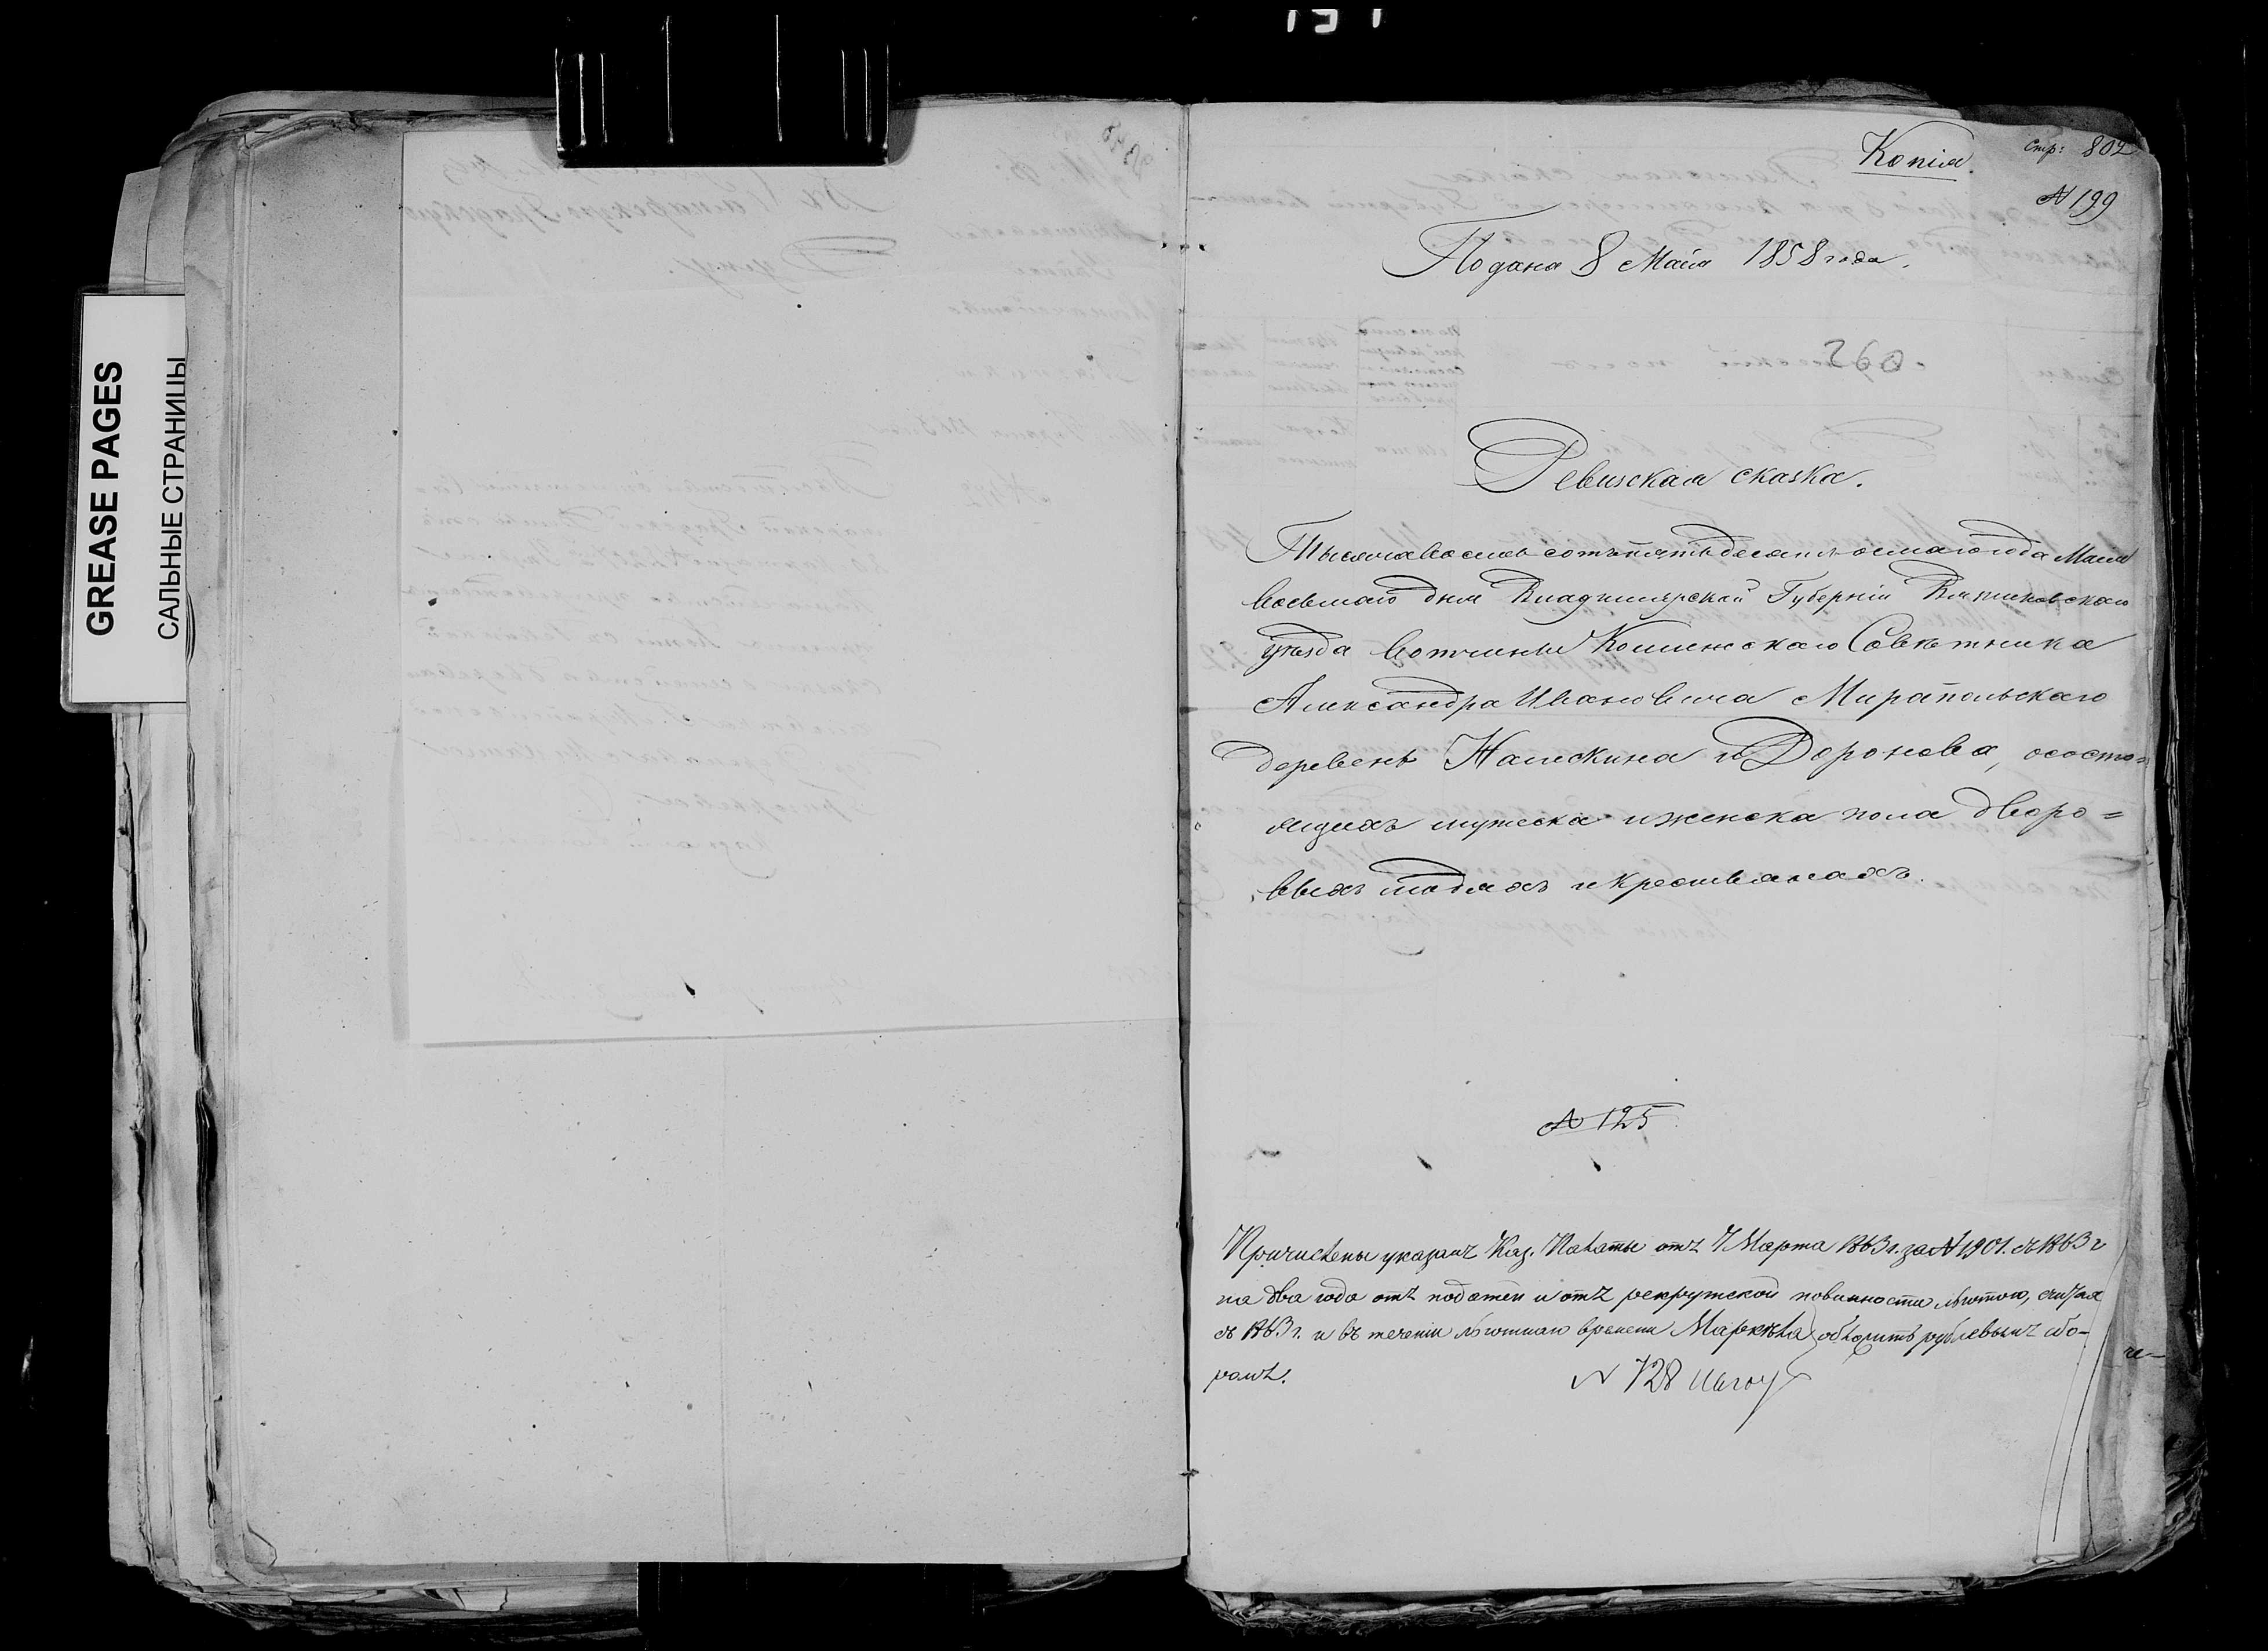 GREASE PAGES
САЛЬНЫЕ СТРАНИЦЫ
Копія.
Стр: 802
№ 199
Подана 8 Майя 1858 года.
260
Ревизская сказка.
Тысяча восемь сотъ пятьдесятъ осмаго года Майя
восьмаго дня Владимірской Губерніи Вязниковскаго
уѣзда вотчины Совѣтника
Александра Ивановича Мирапольскаго
деревень и Доронова, ососто=
ящихъ мужеска и женска пола дворо=
выхъ людяхъ и крестьянахъ.
№ 125
Причислены указомъ Каз. Палаты отъ 7 Марта 1863 г. за № 1901. съ 1863 г
на два года отъ податей и отъ рекрутской повинности льготою, считая
съ 1863 г. и въ теченіи льготнаго времени обложить рублевымъ сбо-
ромъ.
№ 728